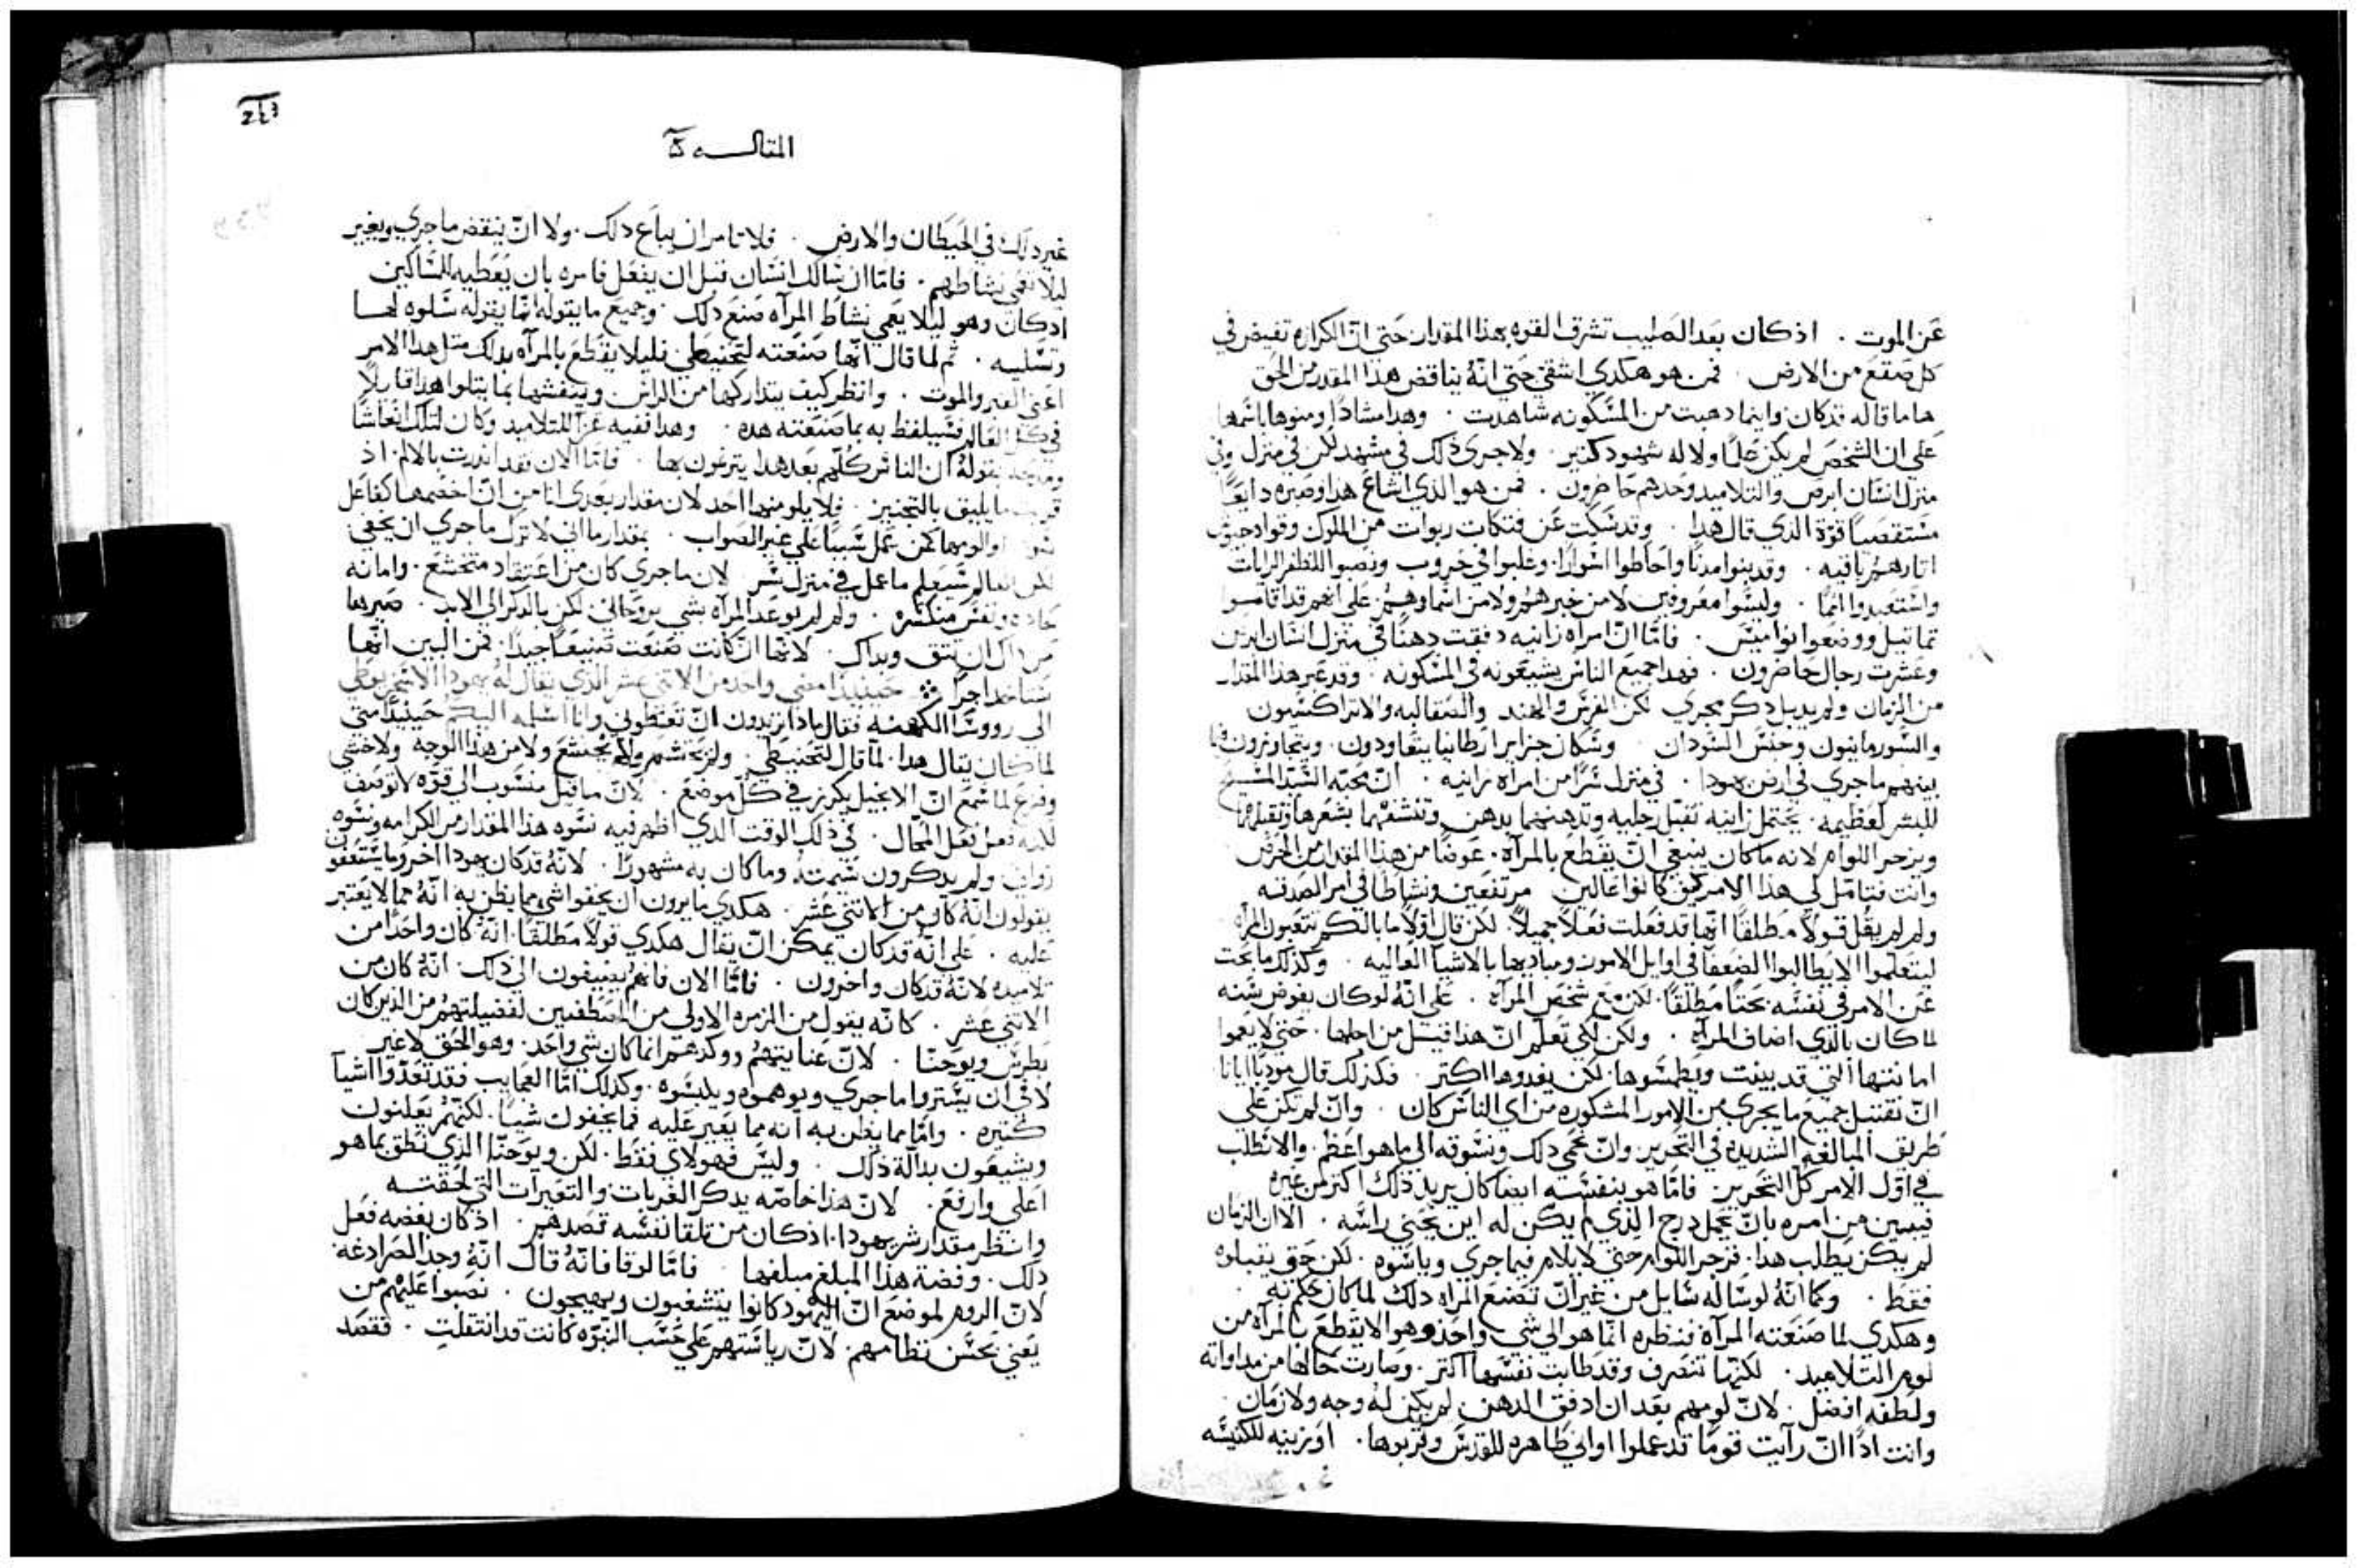 عن الموت . اذ كان بعد الصليب تشرق القوه بهذا المقدار حتي انّ الكرازه تفيض في
كل صقع من الارض . فمن هو هكدي اشقي حتي انّهُ يناقض هذا المقدر من الحق
هاما قاله قد كان واينما دهبت من المسكونه شاهدت . وهدا مشادًا ومنوها باسمها
علي ان الشخص لم يكن جلًا ولا له شهود كتير . ولا جري ذلك في مشهد لكن في منزل وفي
منزل انسان ابرص والتلاميد وحدهم حاضرون . فمن هو الذي اشاع هدا وصيره دايعًا
مستقصيًا قوّة الذي قال هدا . وقد سكت عن فتكات ربوات من الملوك وقواد جيوش
اتارهم باقيه . وقد بنوا مدنًا واحاطوا اسوارًا وغلبوا في حروب ونصبوا للظفر الرايات
واستعبدوا اممًا . وليسوا معروفين لا من خبرهم ولا من اسماوهم علي انهم قد اقاموا
تماتيل ووضعوا نواميس . فامّا انّ امراه زانيه دفقت دهنًا في منزل انسان ابرص
وعشرت رجال حاضرون . فهدا جميع الناس يشيعونه في المسكونه . وقد عبر هدا المقدار
من الزمان ولم يدبل دكر مجري لكن الفرس والهند والصقالبه والاتراكسيون
والسورمانيون وجنس السودان وسكان جزاير ارطانيا يتفاودون . ويتحاورون فيما
بينهم ما جري في ارض يهودا . في منزل سرًا من امراه زانيه . انّ محبة السيّد المسيح
للبشر لعظيمه . يحتمل زانيه تقبّل رجليه وتدهنهما بدهن وتنشفهما بشعرها وتقبلهما
ويزجر اللوام لانه ما كان ينبغي انّ يقطع بالمرآه . عوضًا من هذا المقدار من الحرص
وانت فتامّل لي هذا الامر كيف كانوا عالين مرتفعين ونشاطًا في امر الصدقه
ولم لم يقُل قولًا مطلقًا انّها قد فعلت فعلًا جميلًا . لكن قال اوّلًا ما بالكم تتعبون المراه
ليتعلموا الا يطالبوا الضعفا في اوايل الامور ومباديها بالاشيا العاليه . وكذلك ما بحت
عن الامر في نفسه بحتًا مطلقًا . لكن مع شخص المرآه . علي انّهُ لو كان يفوض سُنه
لما كان بالذي اضاف المرآه . ولكن لكي تعلم انّ هذا قيل من اجلها . حتي لا يعموا
امانتها التي قد بينت ويطمسوها . لكن يغدوها اكتر . فكذلك قال مودّبًا ايانا
انّ نقتبل جميع ما يجري من الامور المشكوره من اي الناس كان . وانّ لم تكن علي
طريق المبالغه الشديده في التحرير وانّ نحمي دلك ونسوقه الي ما هو اعظم . والا نطلب
في اوّل الامر كل التحرير . فامّا هو بنفسه ايضًا كان يريد ذلك اكتر من غيره
فيبين من امره بانّ يحمل درج الذي لم يكن له اين يحني راسه . الا ان الزمان
لم يكن يطلب هدا . فزجر اللوام حتي لا يلام فيما جري وياسوه . لكن حق يقبلوه
فقط . وكما انّهُ لو سأله سايل من غير انّ تصنع المراه دلك لما كان حكم به .
وهكدي لما صنعته المرآه فنظره انّما هو الي شي واحد وهو الا يقطع بالمرآه من
لوم التلاميد . لكنّها تنصرف وقد طابت نفسها اكتر . وصارت حالها من مداواته
ولطفه افضل . لانّ لومهم بعد ان ادفق الدهن . لم يكن لهُ وجه ولا زمان .
وانت ادًا انّ رآيت قومًا قد عملوا اواني طاهره للقدس وقربوها . او زينه للكنيسه
243
المقاله
غير دلك في الحيطان والارض . فلا تامر ان يباع دلك . ولا انّ ينقض ما جري ويغير
ليلا تعمي نشاطهم . فامّا ان سالك انسان قبل ان يفعل فامره بان يعطيه للمساكين
اد كان وهو ليلا يعمي نشاط المرآه صنع دلك . وجميع ما يقوله انّما يقوله سلوه لها
وتسليه . ثم لما قال انّها صنعته لتحنيطي فليلا يقطع بالمرآه بدلك متل هدا الامر
اعني القبر والموت . وانظر كيف يتداركها من الراس وينفشها بما يتلوا هدا قايلًا
في كل العالم فسيلفظ به بما صنعته هده . وهدا ففيه عزآ للتلاميد وكان لتلك انعاشًا
بقوله ان الناس كُلّهم بعد هدا يترعون بها . فامّا الان فقد اندرت بالالم اد
ما يليق بالتجنيز . فلا يلومنها احد لان مقدار بعدي انا من انّ اخصمها كفاعل
والومها كمن عمل شيئًا علي غير الصواب . بمقدار ما اني لا ترك ما جري ان يخفي
لكن العالم سيعلم ما عمل في منزل سرّ . لان ما جري كان من اعتقاد متخشع . وامانه
حاده ونفس منكسره . ولم لم يوعد المرآه بشي بروحاني لكن بالدكر الي الابد . صيرها
من دلك ان تتق وبداك . لانّها ان كانت صنعت صنيعًا جيدًا . فمن البين انّها
ستاخد اجرًا حينيدًا مضي واحد من الاتني عشر الذي يقال لهُ يهودا الاسخريوطي
الي رووسا الكهنه فقال ماذا تريدون انّ تعطوني وانا اسلمه اليكم حينيدًا متي
لما كان يقال هدا . لما قال لتحنيطي . ولم يحتشم ولا يخشع ولا من هدا الوجه ولا خشي
وفزع لما سمع انّ الانجيل يكرز في كل موضع . لانّ ما قيل منسوب الي قوّه لا توصف
في ذلك الوقت الدي اظهر فيه نسّوه هذا المقدار من الكرامه ونسّوه
زواني ولم يدكرون شيمته وما كان به مشهورًا . لانّهُ قد كان يهودا اخر وما يستعفون
يقولون انّهُ كان من الاتني عشر . هكدي ما يرون ان يخفوا شي مما يظن به انّهُ مما لا يعتبر
عليه . علي انّهُ قد كان يمكن انّ يقال هكدي قولًا مطلقًا . انّهُ كان واحدًا من
تلاميده لانّهُ قد كان واخرون . فامّا الان فانهم يضيفون الي ذلك . انّهُ كان من
الاتني عشر . كانّه يقول من الزمره الاولي من المنطفيين لفضيلتهم من الذين كان
بطرس ويوحنا . لانّ عنايتهم ووكدهم انما كان شي واحد . وهو الحق لا غير
لا في ان يستروا ما جري ويوهموه ويلبسوه . وكدلك امّا العجايب فقد تعدّوا اشيآ
كتيره . وامّا مما يظن به انه مما يعير عليه فما يخفون شيئًا . لكنّهم يعلنون
ويشيعون بدالة ذلك . وليس فهولاي فقط . لكن ويوحنّا الذي نطق بما هو
اعلي وارفع . لانّ هذا خاصّه يدكر الفريات والتعيرات التي لحقته
وانظر مقدار شر يهودا . اذ كان من تلقا نفسه قصدهم . اذ كان بفضه فعل
دلك . وفضة هذا المبلغ مبلغها . فامّا لوقا فانّهُ قال انّهُ وجد الصرادغه
لانّ الروم لموضع انّ اليهود كانوا يتشغبون ويهيجون . نصبوا عليهم من
يعني بحسن نظامهم . لانّ رياستهم علي حسب النبوّه كانت قد انتقلت . فقصد